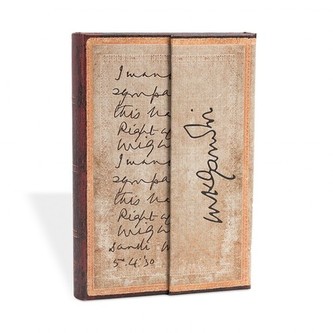 I wan
sympa
this ba
Right a
Might
I wan
sympa
this ba
Right a
Might
Dandi
5.4.30
MKGandhi